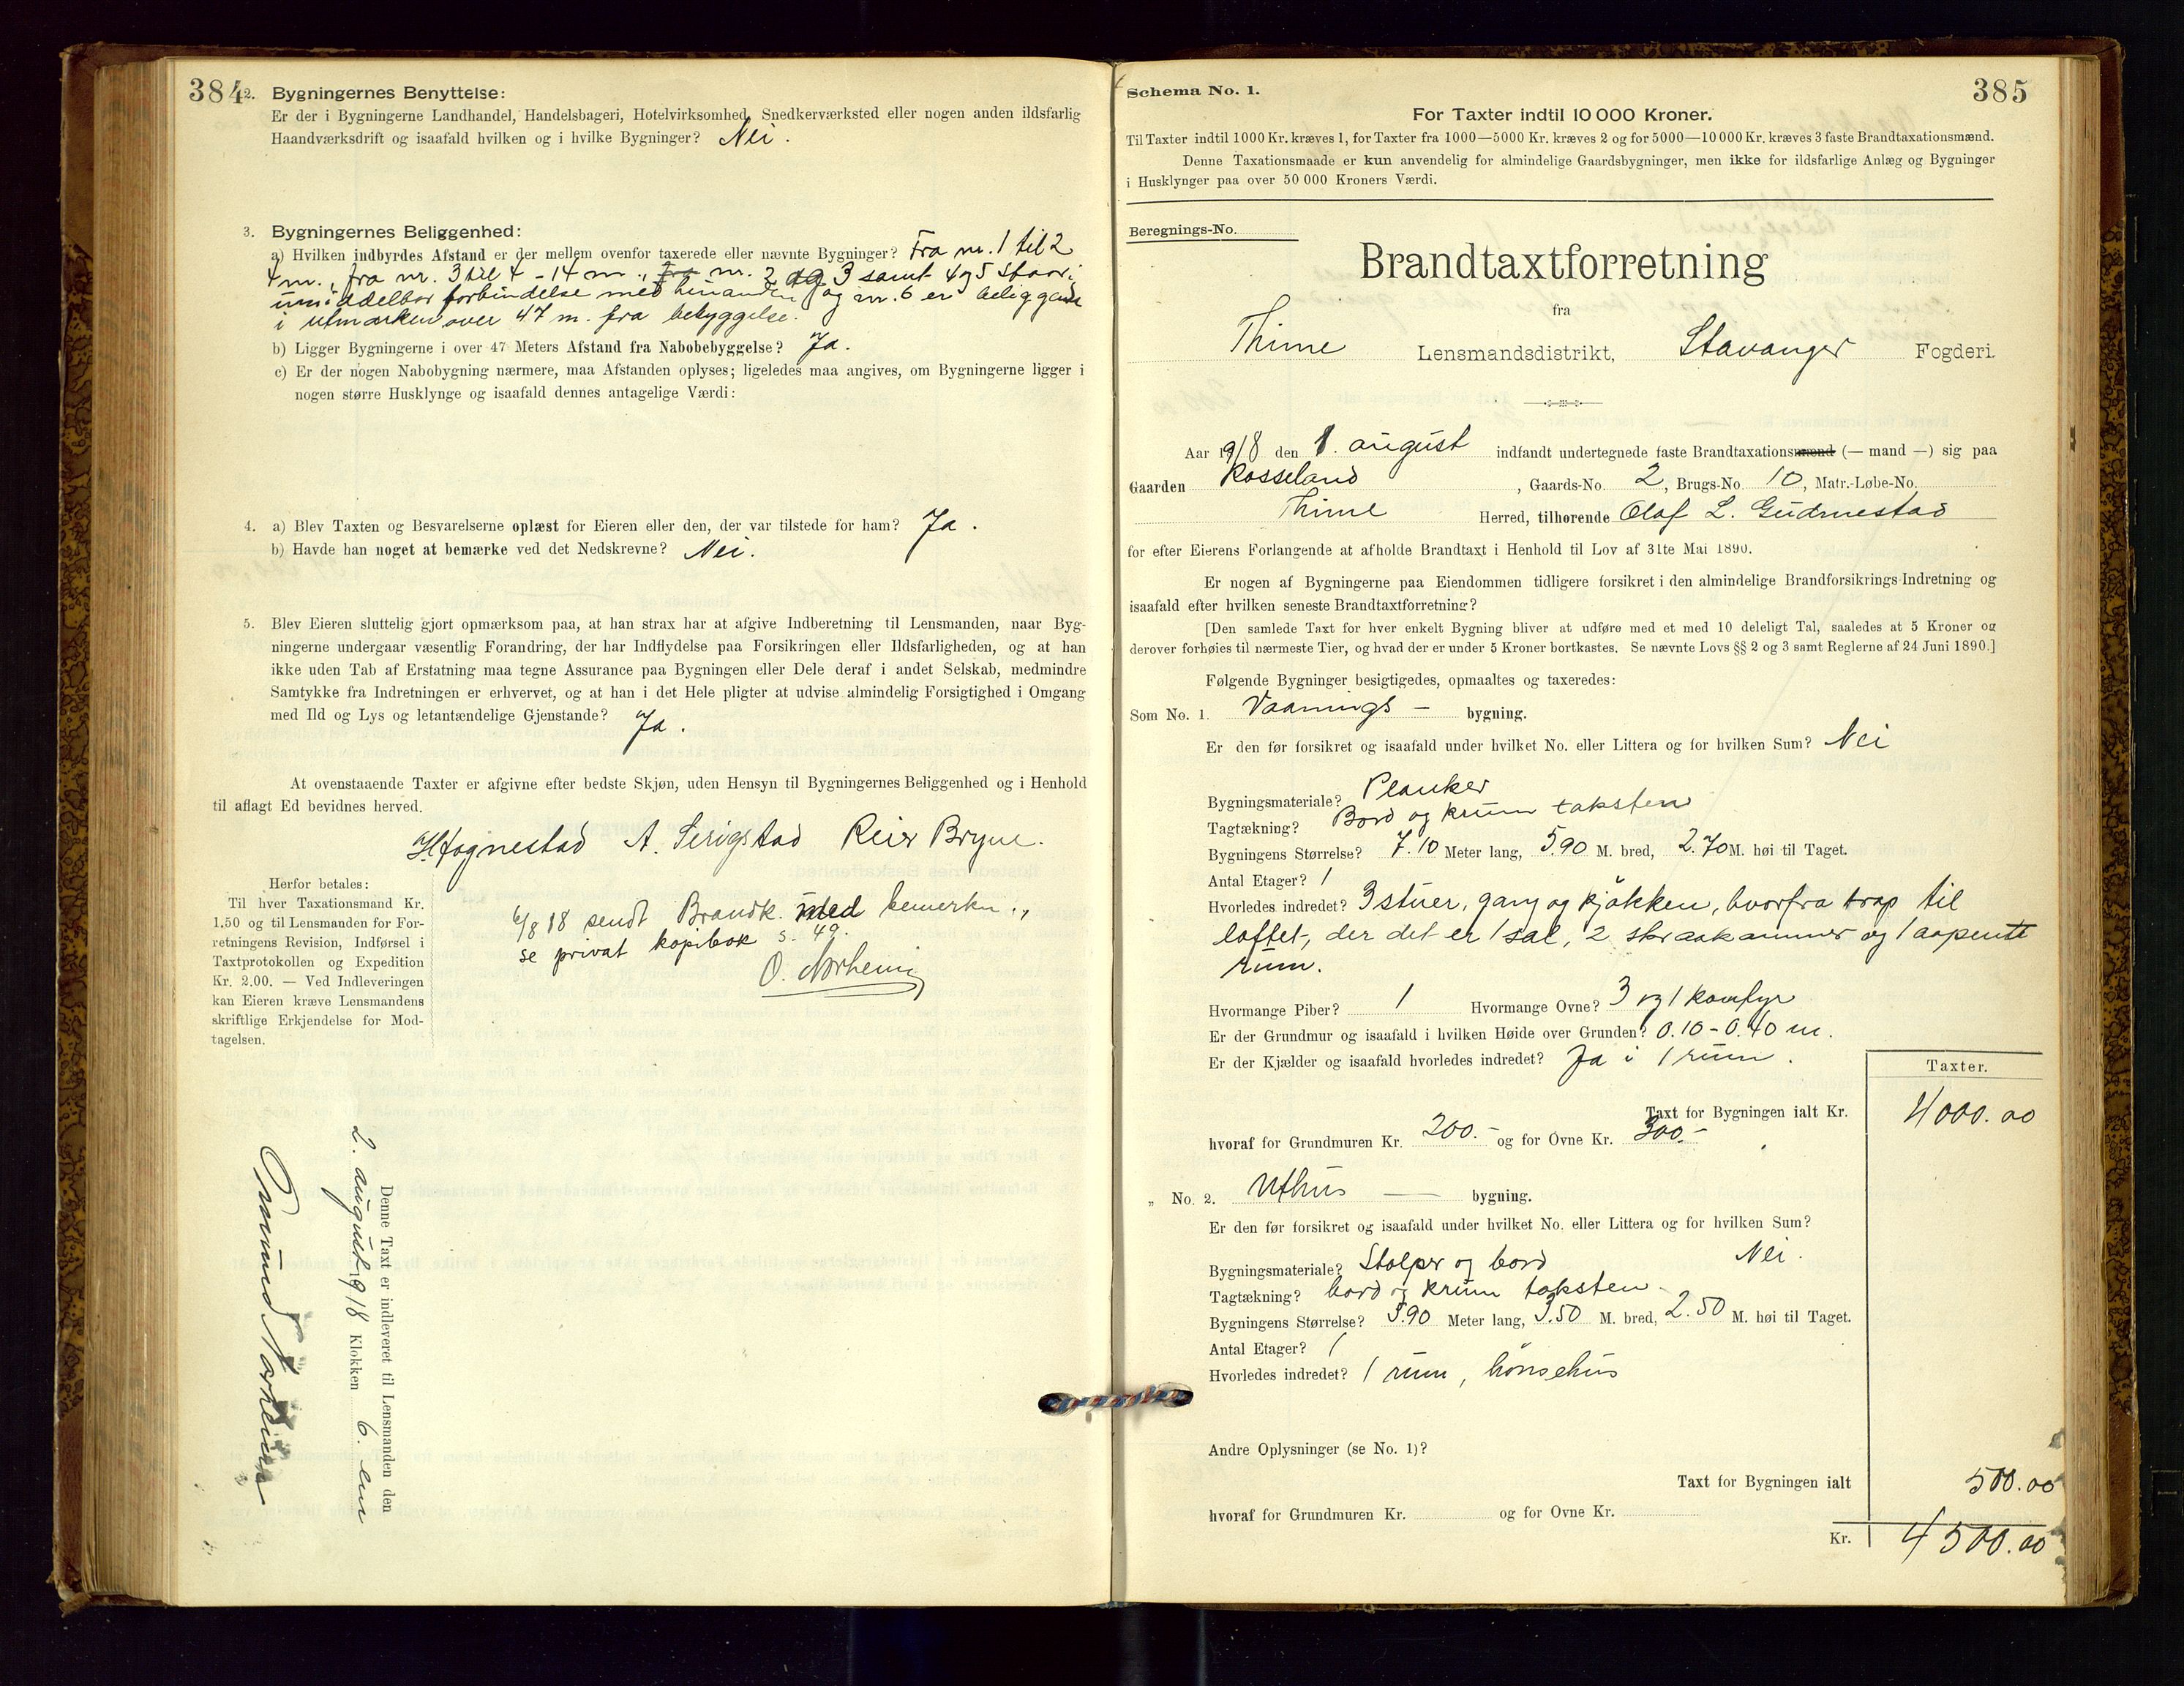 384
2. Bygningernes Benyttelse:
Er der i Bygningerne Landhandel, Handelsbageri, Hotelvirksomhed, Snedkerværksted eller nogen anden ildsfarlig
Haandværksdrift og isaafald hvilken og i hvilke Bygninger? Nei.
3. Bygningernes Beliggenhed:
a) Hvilken indbyrdes Afstand er der mellem ovenfor taxerede eller nævnte Bygninger? Fra nr. 1 til 2
4 m., fra nr. 3 til 4 - 14 m., fra nr. 2 og 3 samt 4 og 5 staar i
umiddelbar forbindelse med hinanden og nr. 6 er beliggende
i utmarken over 47 m. fra bebyggelse.
b) Ligger Bygningerne i over 47 Meters Afstand fra Nabobebyggelse? Ja.
c) Er der nogen Nabobygning nærmere, maa Afstanden oplyses; ligeledes maa angives, om Bygningerne ligger i
nogen større Husklynge og isaafald dennes antagelige Værdi:
4. a) Blev Taxten og Besvarelserne oplæst for Eieren eller den, der var tilstede for ham? Ja.
b) Havde han noget at bemærke ved det Nedskrevne? Nei.
5. Blev Eieren sluttelig gjort opmærksom paa, at han strax har at afgive Indberetning til Lensmanden, naar Byg-
ningerne undergaar væsentlig Forandring, der har Indflydelse paa Forsikringen eller Ildsfarligheden, og at han
ikke uden Tab af Erstatning maa tegne Assurance paa Bygningen eller Dele deraf i andet Selskab, medmindre
Samtykke fra Indretningen er erhvervet, og at han i det Hele pligter at udvise almindelig Forsigtighed i Omgang
med Ild og Lys og letantændelige Gjenstande? Ja.
At ovenstaaende Taxter er afgivne efter bedste Skjøn, uden Hensyn til Bygningernes Beliggenhed og i Henhold
til aflagt Ed bevidnes herved.
H Hognestad A. Serigstad Reier Bryne.
Herfor betales:
Til hver Taxationsmand Kr.
1.50 og til Lensmanden for For-
retningens Revision, Indførsel i
Taxtprotokollen og Expedition
Kr. 2.00. — Ved Indleveringen
kan Eieren kræve Lensmandens
skriftlige Erkjendelse for Mod-
tagelsen.
6/8 18 sendt Brandk. med bemerkn.,
se privat kopibok s. 49.
O. Norheim
Denne Taxt er indleveret til Lensmanden den
2. august 1918 Klokken 6. em
Omund Norheim
385
Schema No. 1.
For Taxter indtil 10 000 Kroner.
Til Taxter indtil 1000 Kr. kræves 1, for Taxter fra 1000—5000 Kr. kræves 2 og for 5000—10 000 Kr. kræves 3 faste Brandtaxationsmænd.
Denne Taxationsmaade er kun anvendelig for almindelige Gaardsbygninger, men ikke for ildsfarlige Anlæg og Bygninger
i Husklynger paa over 50 000 Kroners Værdi.
Beregnings-No.
Brandtaxtforretning
fra
Thime Lensmandsdistrikt, Stavanger Fogderi.
Aar 1918 den 1. august indfandt undertegnede faste Brandtaxationsmænd (— mand —) sig paa
Gaarden Rosseland, Gaards-No. 2, Brugs-No. 10, Matr.-Løbe-No.
Thime Herred, tilhørende Olaf L. Gudmestad
for efter Eierens Forlangende at afholde Brandtaxt i Henhold til Lov af 31te Mai 1890.
Er nogen af Bygningerne paa Eiendommen tidligere forsikret i den almindelige Brandforsikrings-Indretning og
isaafald efter hvilken seneste Brandtaxtforretning?
[Den samlede Taxt for hver enkelt Bygning bliver at udføre med et med 10 deleligt Tal, saaledes at 5 Kroner og
derover forhøies til nærmeste Tier, og hvad der er under 5 Kroner bortkastes. Se nævnte Lovs §§ 2 og 3 samt Reglerne af 24 Juni 1890.]
Følgende Bygninger besigtigedes, opmaaltes og taxeredes:
Som No. 1. Vaanings - bygning.
Er den før forsikret og isaafald under hvilket No. eller Littera og for hvilken Sum? Nei
Bygningsmateriale? Planker
Tagtækning? Bord og krum taksten
Bygningens Størrelse? 7.10 Meter lang, 5.90 M. bred, 2.70 M. høi til Taget.
Antal Etager? 1
Hvorledes indredet? 3 stuer, gang og kjøkken, hvorfra trap til
loftet, der det er 1 sal, 2 skraakammer og 1 aapent
rum.
Hvormange Piber? 1 Hvormange Ovne? 3 og 1 komfyr
Er der Grundmur og isaafald i hvilken Høide over Grunden? 0.10 - 0.40 m.
Er der Kjælder og isaafald hvorledes indredet? Ja i 1 rum.
Taxter.
Taxt for Bygningen ialt Kr. 4000.00
hvoraf for Grundmuren Kr. 200.- og for Ovne Kr. 300.-
„ No. 2. Uthus — bygning.
Er den før forsikret og isaafald under hvilket No. eller Littera og for hvilken Sum?
Nei.
Bygningsmateriale? Stolper og bord
Tagtækning? bord og krum taksten
Bygningens Størrelse? 5.90 Meter lang, 3.50 M. bred, 2.50 M. høi til Taget.
Antal Etager? 1
Hvorledes indredet? 1 rum, hønsehus
Andre Oplysninger (se No. 1)?
Taxt for Bygningen ialt 500.00
hvoraf for Grundmuren Kr. og for Ovne Kr.
Kr. 4500.00